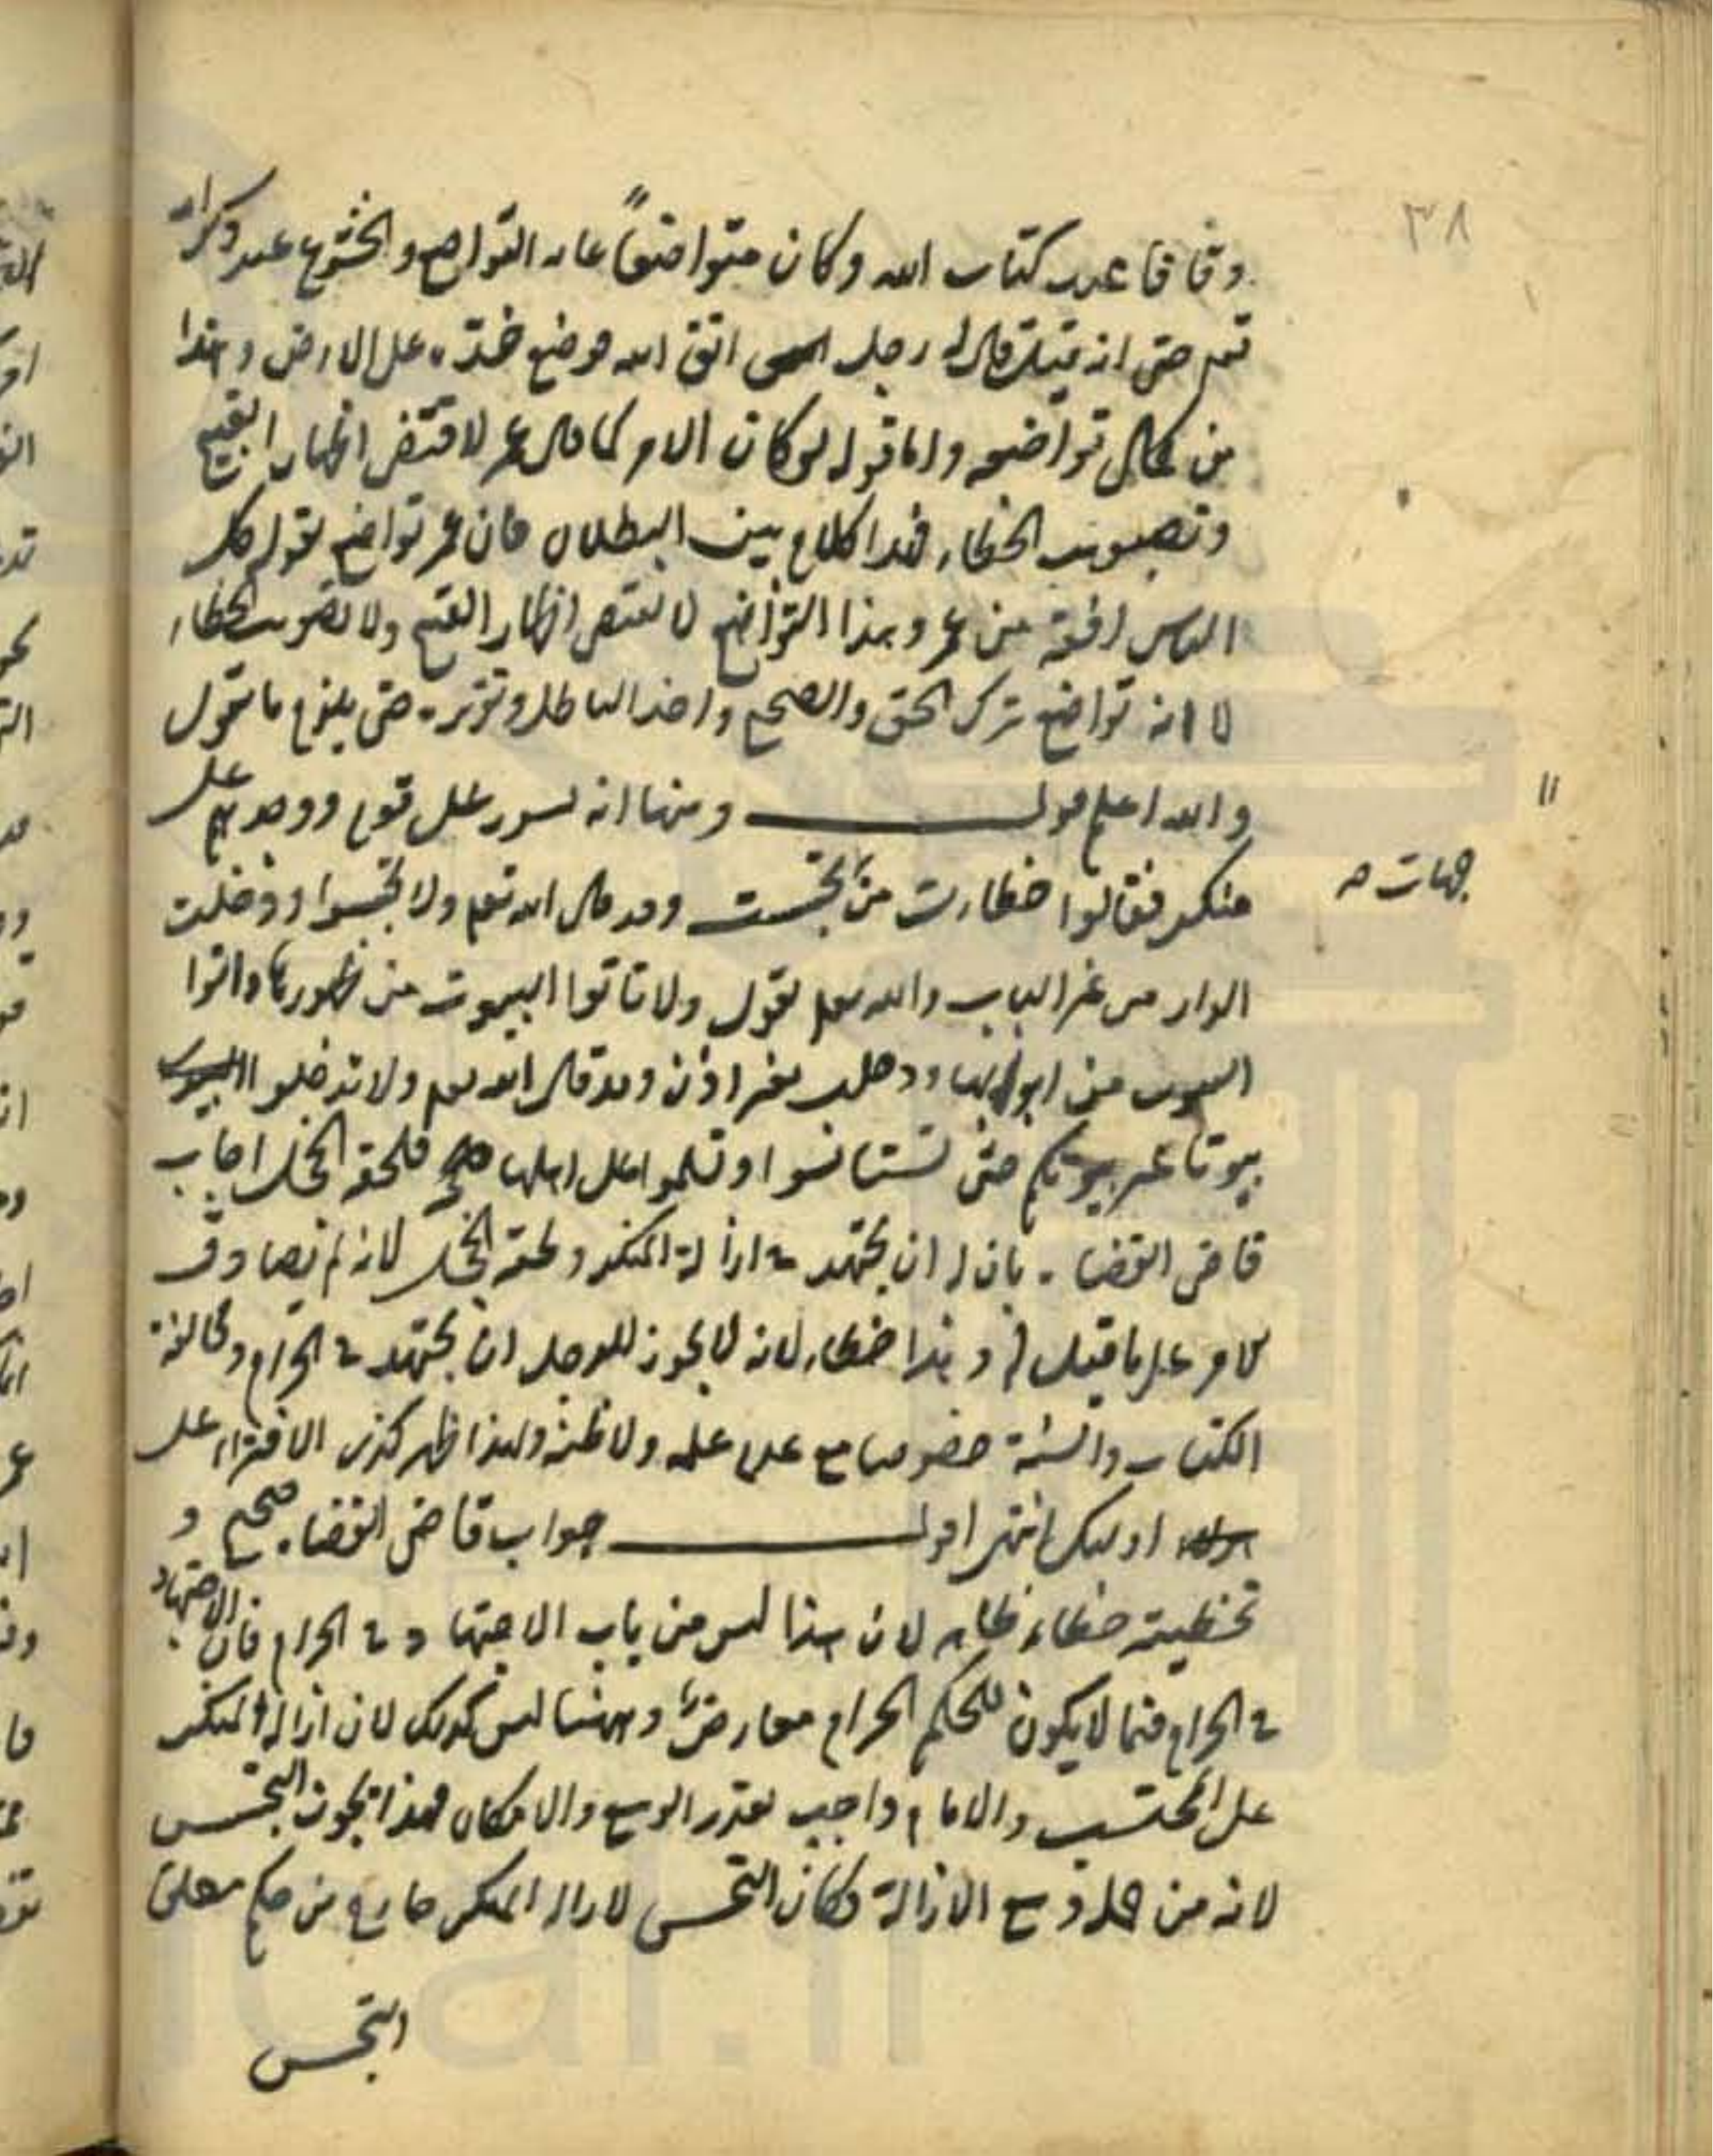 ٣٨
وقافا عند كتاب الله وكان متواضعاً غاية التواضع والخشوع عند ذكر الله
تعم حتى انه قال له رجل اتق الله فوضع خدّه على الارض وهذا
من كمال تواضعه واما قوله لو كان الامر كما قال عمر لاقتضى اظهار القبيح
وتصويب الخطاء فهذا كلام بين البطلان فان عمر تواضع بقوله كل
الناس افقه من عمر وهذا التواضع لا يقتضى اظهار القبيح ولا تصويب الخطاء
لا انه تواضع بترك الحق والصحيح واخذ الباطل وتقريره حتى يلزم ما تقول
والله اعلم قوله ومنها انه تسور على قوم ووجدهم على
منكر فقالوا اخطات من جهات تجسست وقد قال الله تعم ولا تجسسوا ودخلت
الدار من غير الباب والله تعم يقول ولا تاتوا البيوت من ظهورها واتوا
البيوت من ابوابها ودخلت بغير اذن وقد قال الله تعم ولا تدخلوا
بيوتا غير بيوتكم حتى تستانسوا وتسلموا على اهلها فلحقه الخجل اجاب
قاضى القضاه بان له ان يجتهد فى ازالة المنكر ولحقه الخجل لانه لم يصادف
الامر على ما قيل له وهذا خطاء لانه لا يجوز للرجل ان يجتهد فى الحرام ومخالفة
الكتاب والسنة خصوصا مع عدم علمه ولا ظنه ولهذا ظهر كذب الافتراء على
اوليك انتهى اقول جواب قاضى القضاه صحيح و
تخطيته خطاء ظاهر لان هذا ليس من باب الاجتهاد فى الحرام فان الاجتهاد
فى الحرام فيما لا يكون للحكم الحرام معارض وههنا ليس كذلك لان ازالة المنكر
على المحتسب والامام واجب بقدر الوسع والامكان فهذا يجوز التجسس
لانه من جملة وسع الازالة وكان التجسس لازالة المنكر خارج من حكم مطلق
التجسس